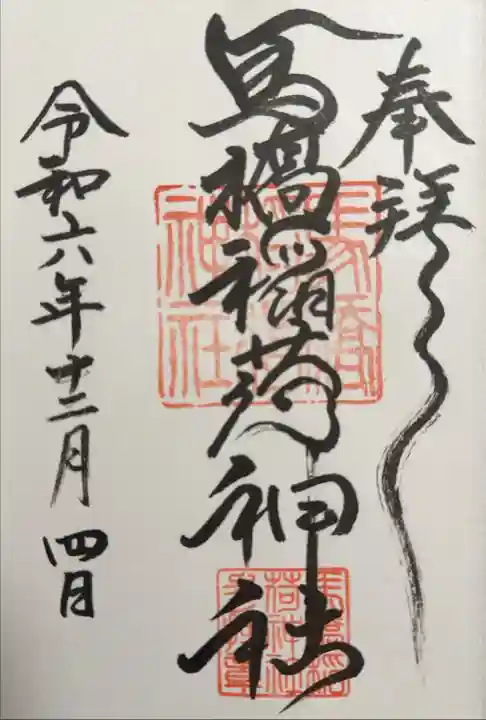 奉拝
馬橋稲荷神社
令和六年十二月四日